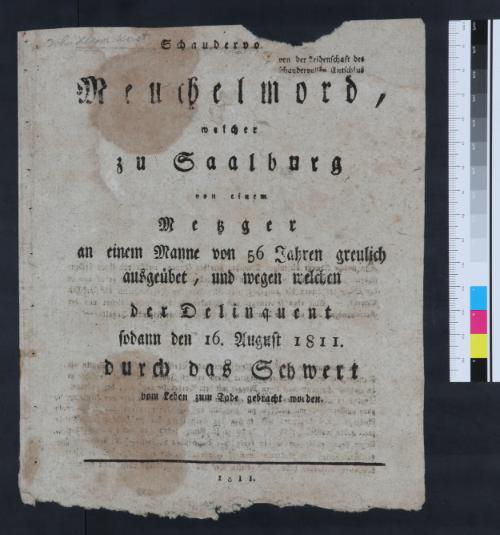 Schaudervo
von der Leidenschaft des
schaudervollsten Entschlus
Meuchelmord,
welcher
zu Saalburg
von einem
Metzger
an einem Manne von 56 Jahren greulich
ausgeübet, und wegen welchen
der Delinquent
sodann den 16. August 1811.
durch das Schwert
vom Leben zum Tode gebracht worden.
1811.